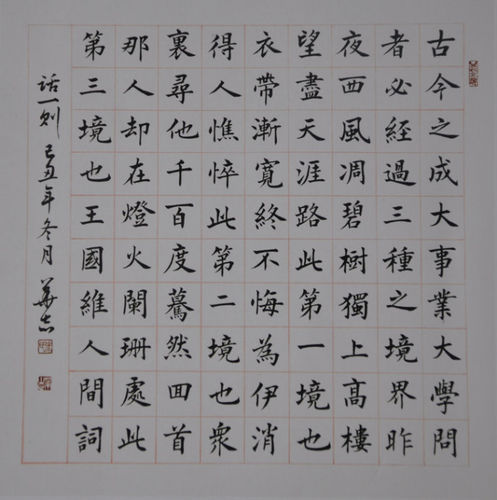 古今之成大事業大學問
者必經過三種之境界昨
夜西風凋碧樹獨上髙樓
望盡天涯路此第一境也
衣帶漸寬終不悔為伊消
得人憔悴此第二境也衆
裏尋他千百度驀然回首
那人却在燈火闌珊處此
第三境也王國維人間詞
話一则 己丑年冬月